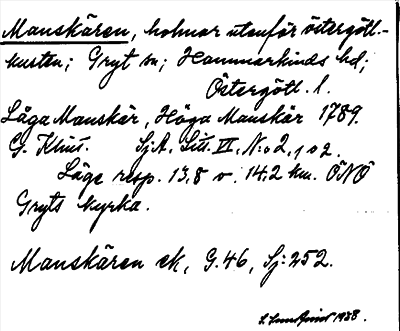 Manskären, holmar utanför östergötl.-
kusten; Gryt sn; Hammarkinds hd;
Östergötl. l.
Låga Manskär, Höga Manskär 1789.
G. Klint. SjA. Litt. VI, N:o 2, 102.
Läge resp. 13,8 o. 14,2 km. ÖNÖ
Gryts kyrka.
Manskären ek, G. 46, Sj: 252.
1938.